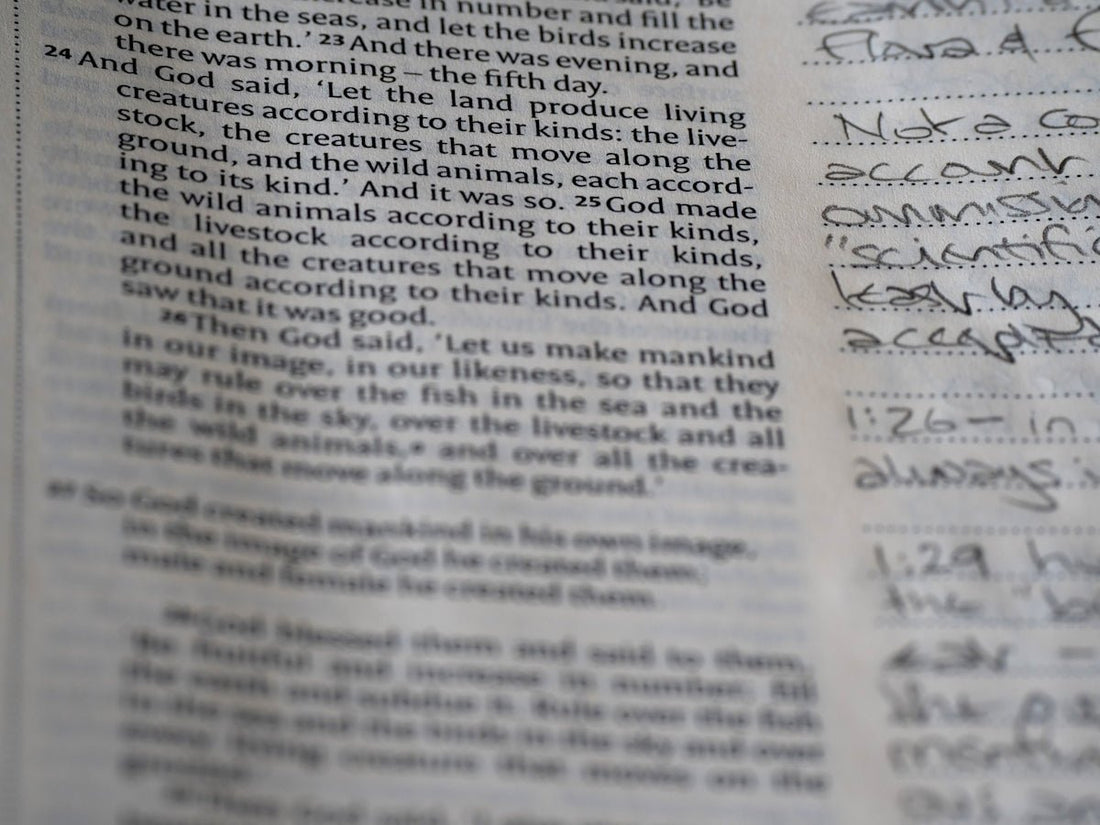 in number and fill the
water in the seas, and let the birds increase
on the earth.' 23 And there was evening, and
there was morning – the fifth day.
24 And God said, 'Let the land produce living
creatures according to their kinds: the live-
stock, the creatures that move along the
ground, and the wild animals, each accord-
ing to its kind.' And it was so. 25 God made
the wild animals according to their kinds,
the livestock according to their kinds,
and all the creatures that move along the
ground according to their kinds. And God
saw that it was good.
26 Then God said, 'Let us make mankind
in our image, in our likeness, so that they
may rule over the fish in the sea and the
birds in the sky, over the livestock and all
the wild animals, and over all the crea-
tures that move along the ground.'
27 So God created mankind in his own image,
in the image of God he created them;
male and female he created them.
28 God blessed them and said to them,
fruitful and increase in number; fill
the earth and subdue it. Rule over the fish
in the sea and the birds in the sky and over
every living creature that moves on the
ground.
Not a
account
"scientific
1:26 – in
always
1:29
the